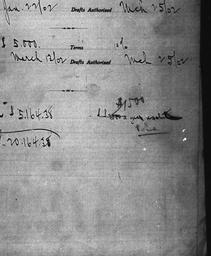 Jan. 22/02 Drafts Authorized Mch 25/02
$ 5.000. Terms %
March 12/02 Drafts Authorized Mch 25/02
$1500
" $ 5.164.38
20.164.38